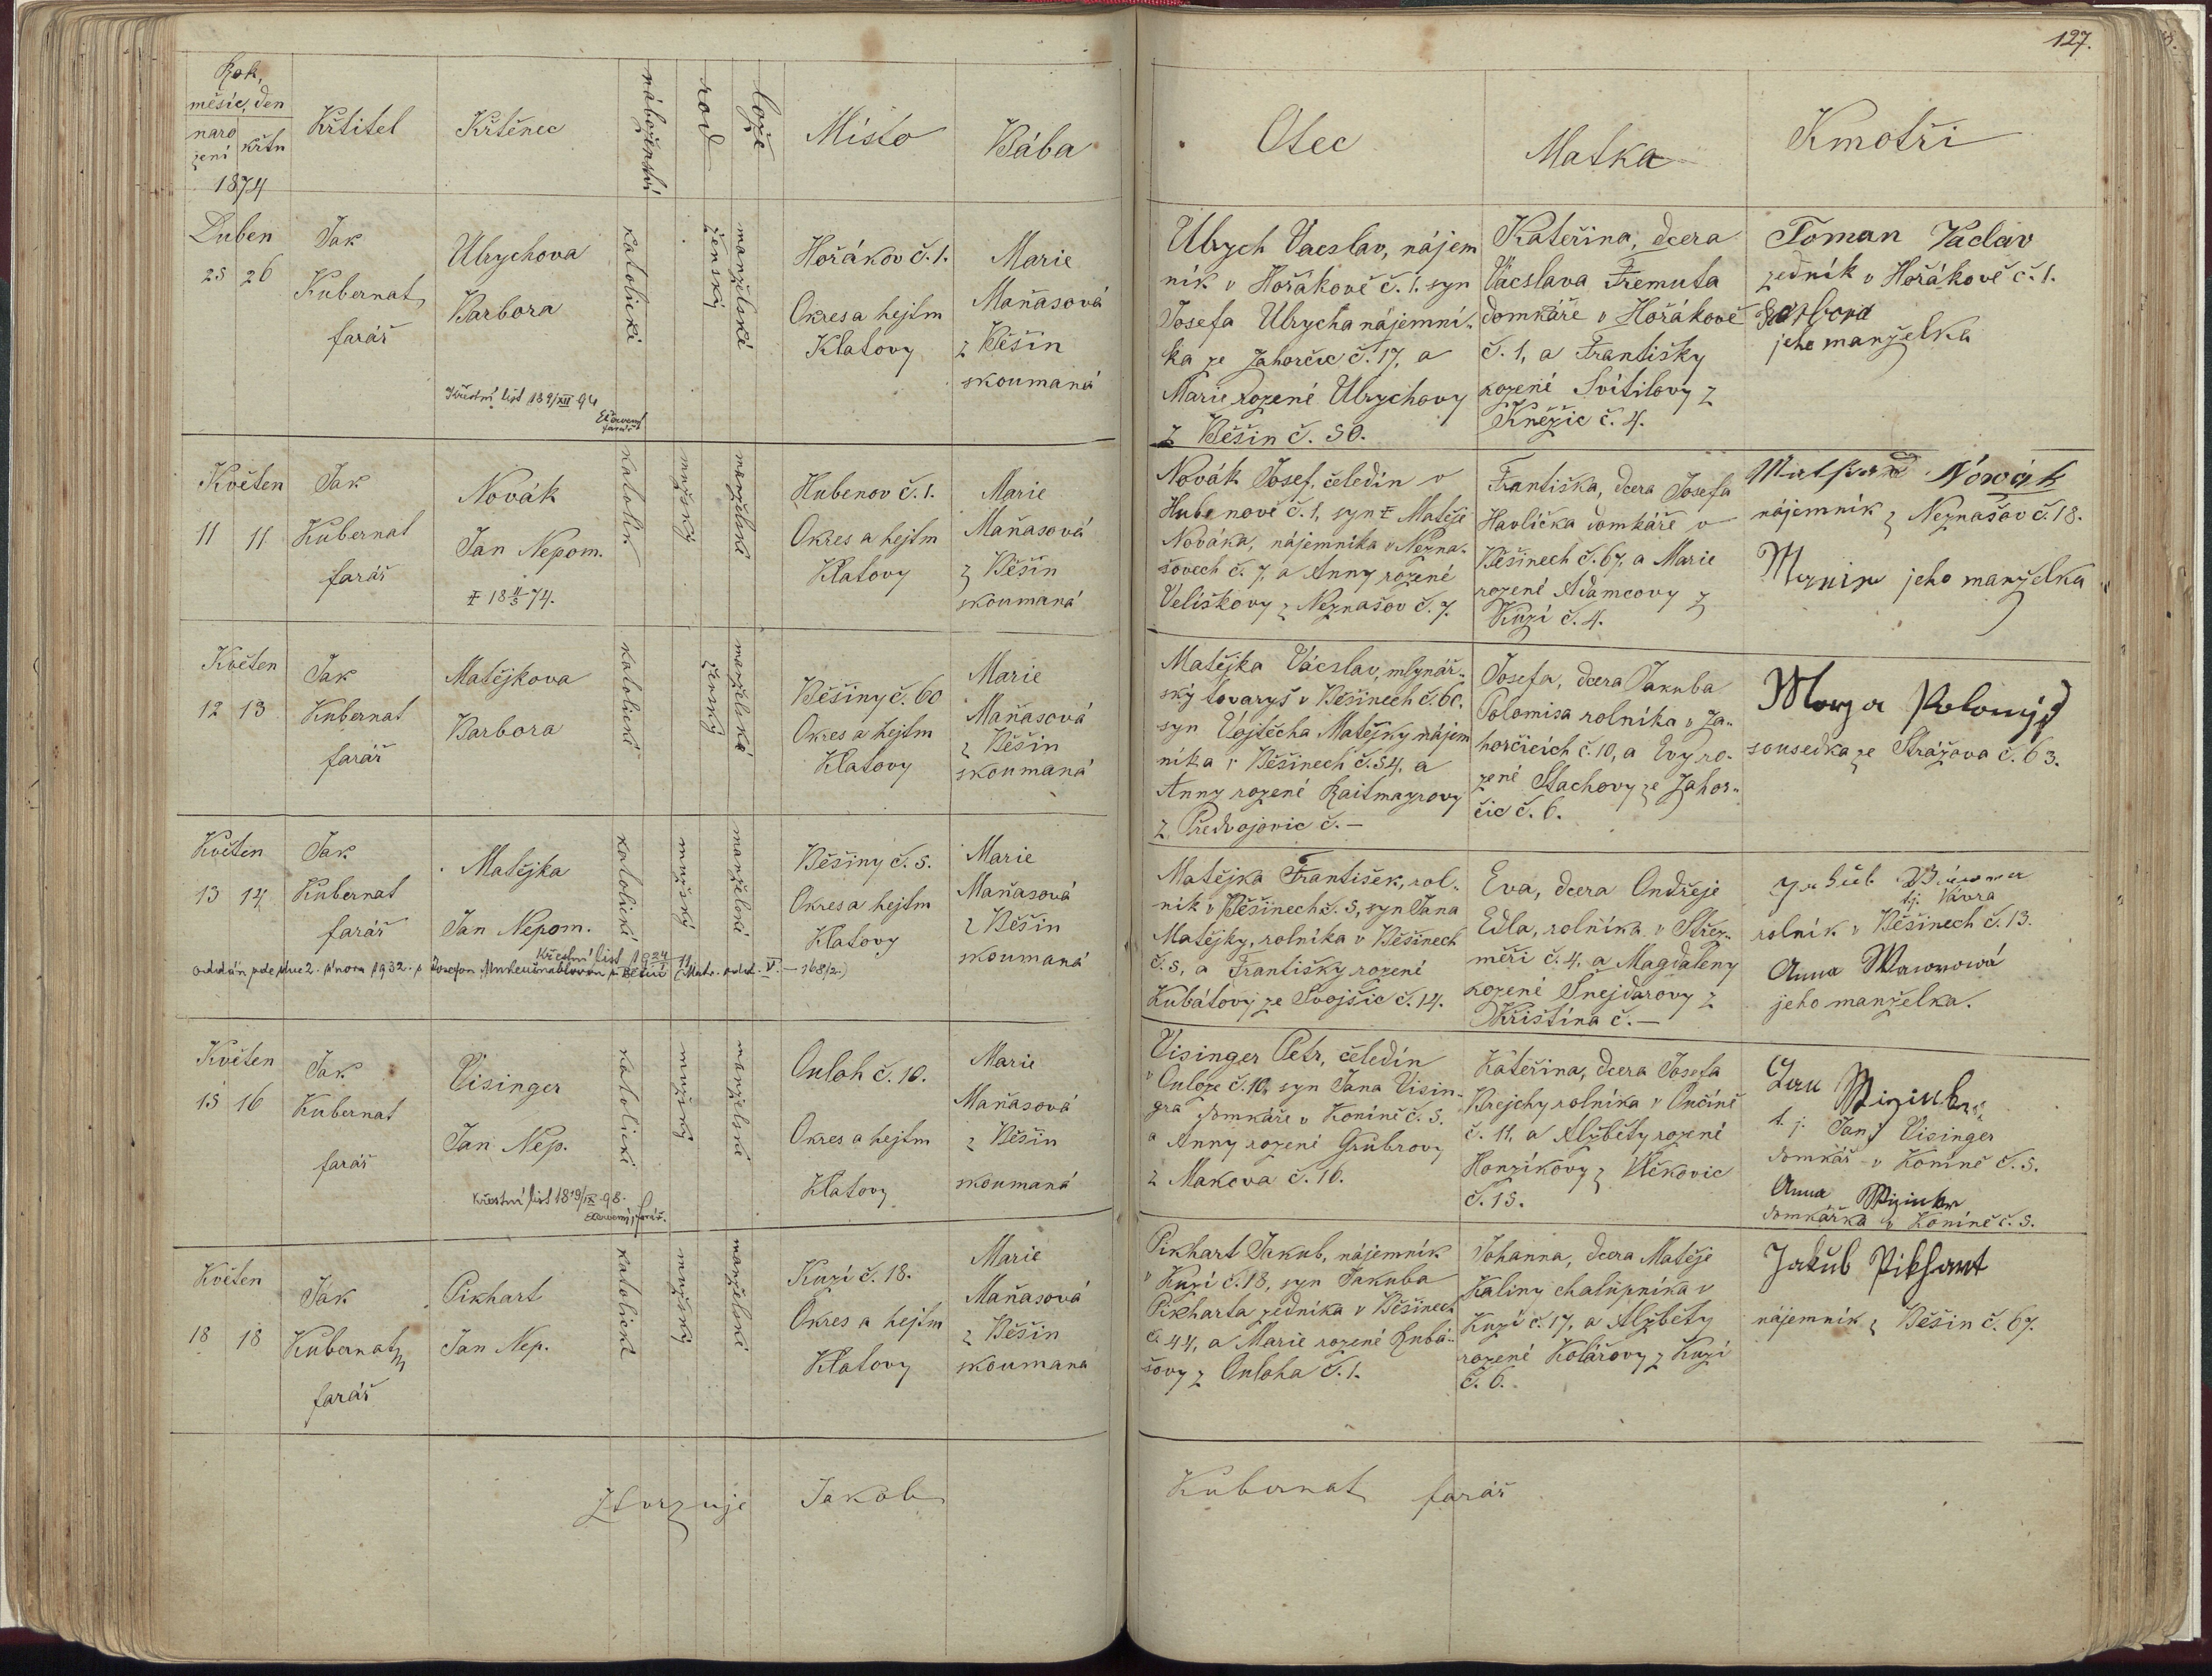 127.
Rok,
měsíc, den
naro
jení
křtu
1874
Křtitel
Křtěnec
náboženství
rod
lože
Místo
Bába
Otec
Matka
Kmotři
Duben
25 26
Jak
Kubernat
farář
Ulrychova
Barbora
Křestní list 189/XII 94
farář
katolické
ženský
manželské
Hořákov č. 1.
Okres a hejtm
Klatovy
Marie
Maňasová
z Běšin
zkoumaná
Ulrych Vacslav, nájem
ník v Hořákově č. 1. syn
Josefa Ulrycha nájemní-
ka ze Zahorčic č. 17, a
Marie rozené Ulrychovy
z Běšin č. 50.
Kateřina, dcera
Vácslava Fremuta
domkáře v Hořákově
č. 1, a Františky
rozené Svítilovy z
Kněžic č. 4.
Toman Václav
zedník v Hořákově č. 1.
Barbora
jeho manželka
Květen
11 11
Jak
Kubernat
farář
Novák
Jan Nepom.
18 11/5 74.
katolík.
mužský
manželské
Hubenov č. 1.
Okres a hejtm
Klatovy
Marie
Maňasová
z Běšin
zkoumaná
Novák Josef, čeledín v
Hubenově č. 1, syn Ɨ Matěje
Nováka, nájemníka v Nezna-
šovech č. 7, a Anny rozené
Veliškovy z Neznašov č. 7.
Františka, dcera Josefa
Havlíčka domkáře v
Běšinech č. 67, a Marie
rozené Adamcovy z
Kuzí č. 4.
Nowák
nájemník z Neznašov č. 18.
jeho manželka
Květen
12 13
Jak
Kubernat
farář
Matějkova
Barbora
katolické
ženský
manželské
Běšiny č. 60
Okres a hejtm
Klatovy
Marie
Maňasová
z Běšin
zkoumaná
Matějka Vácslav, mlynář-
ský tovaryš v Běšinech č. 60.
syn Vojtěcha Matějky nájem
níka v Běšinech č. 54, a
Anny rozené Raitmayrovy
z Předvojovic č. —
Josefa, dcera Jakuba
Polomisa rolníka v Za-
horčicích č. 10, a Evy ro-
zené Stachovy ze Zahor-
čic č. 6.
sousedka ze Strážova č. 63.
Květen
13 14
Jak
Kubernat
farář
Matějka
Jan Nepom.
Křestní list 1924
oddán zde dne 2. února 1932. s Josefou
katolické
mužský
manželské
Běšiny č. 5.
Okres a hejtm
Klatovy
Marie
Maňasová
z Běšin
zkoumaná
Matějka František, rol-
ník v Běšinech č. 5, syn Jana
Matějky, rolníka v Běšinech
č. 5, a Františky rozené
Kubátovy ze Svojšic č. 14.
Eva, dcera Ondřeje
Edla, rolníka v Střez-
měři č. 4. a Magdaleny
rozené Šnejdarovy z
Křištína č. —
tj. Vávra
rolník v Běšinech č. 13.
Anna Wawrowá
jeho manželka.
Květen
15 16
Jak
Kubernat
farář
Visinger
Jan Nep.
Křestní list 18 19/IX 98.
farář.
katolické
mužský
manželské
Ouloh č. 10.
Okres a hejtm
Klatovy
Marie
Maňasová
z Běšin
zkoumaná
Visinger Petr, čeledín
v Ouloze č. 10, syn Jana Visin-
gra domkáře v Koníně č. 5.
a Anny rozené Grubrovy
z Makova č. 16.
Kateřina, dcera Josefa
Krejchy rolníka v Ončíně
č. 11, a Alžběty rozené
Honzíkovy z Vlčkovic
č. 15.
Jan
t. j. Jan Visinger
domkář v Koníně č. 5.
Anna
domkářka v Koníně č. 5.
Květen
18 18
Jak
Kubernat
farář
Pikhart
Jan Nep.
katolické
mužský
manželské
Kuzí č. 18.
Okres a hejtm
Klatovy
Marie
Maňasová
z Běšin
zkoumaná
Pikhart Jakub, nájemník
v Kuzí č. 18, syn Jakuba
Pikharta zedníka v Běšinech
č. 44, a Marie rozené Lubá-
šovy z Ouloha č. 1.
Johanna, dcera Matěje
Kaliny chalupníka v
Kuzí č. 17, a Alžběty
rozené Kolářovy z Kuzí
č. 6.
Jakub Pikhart
nájemník z Běšin č. 67.
Ztvrzuje Jakob Kubernat farář